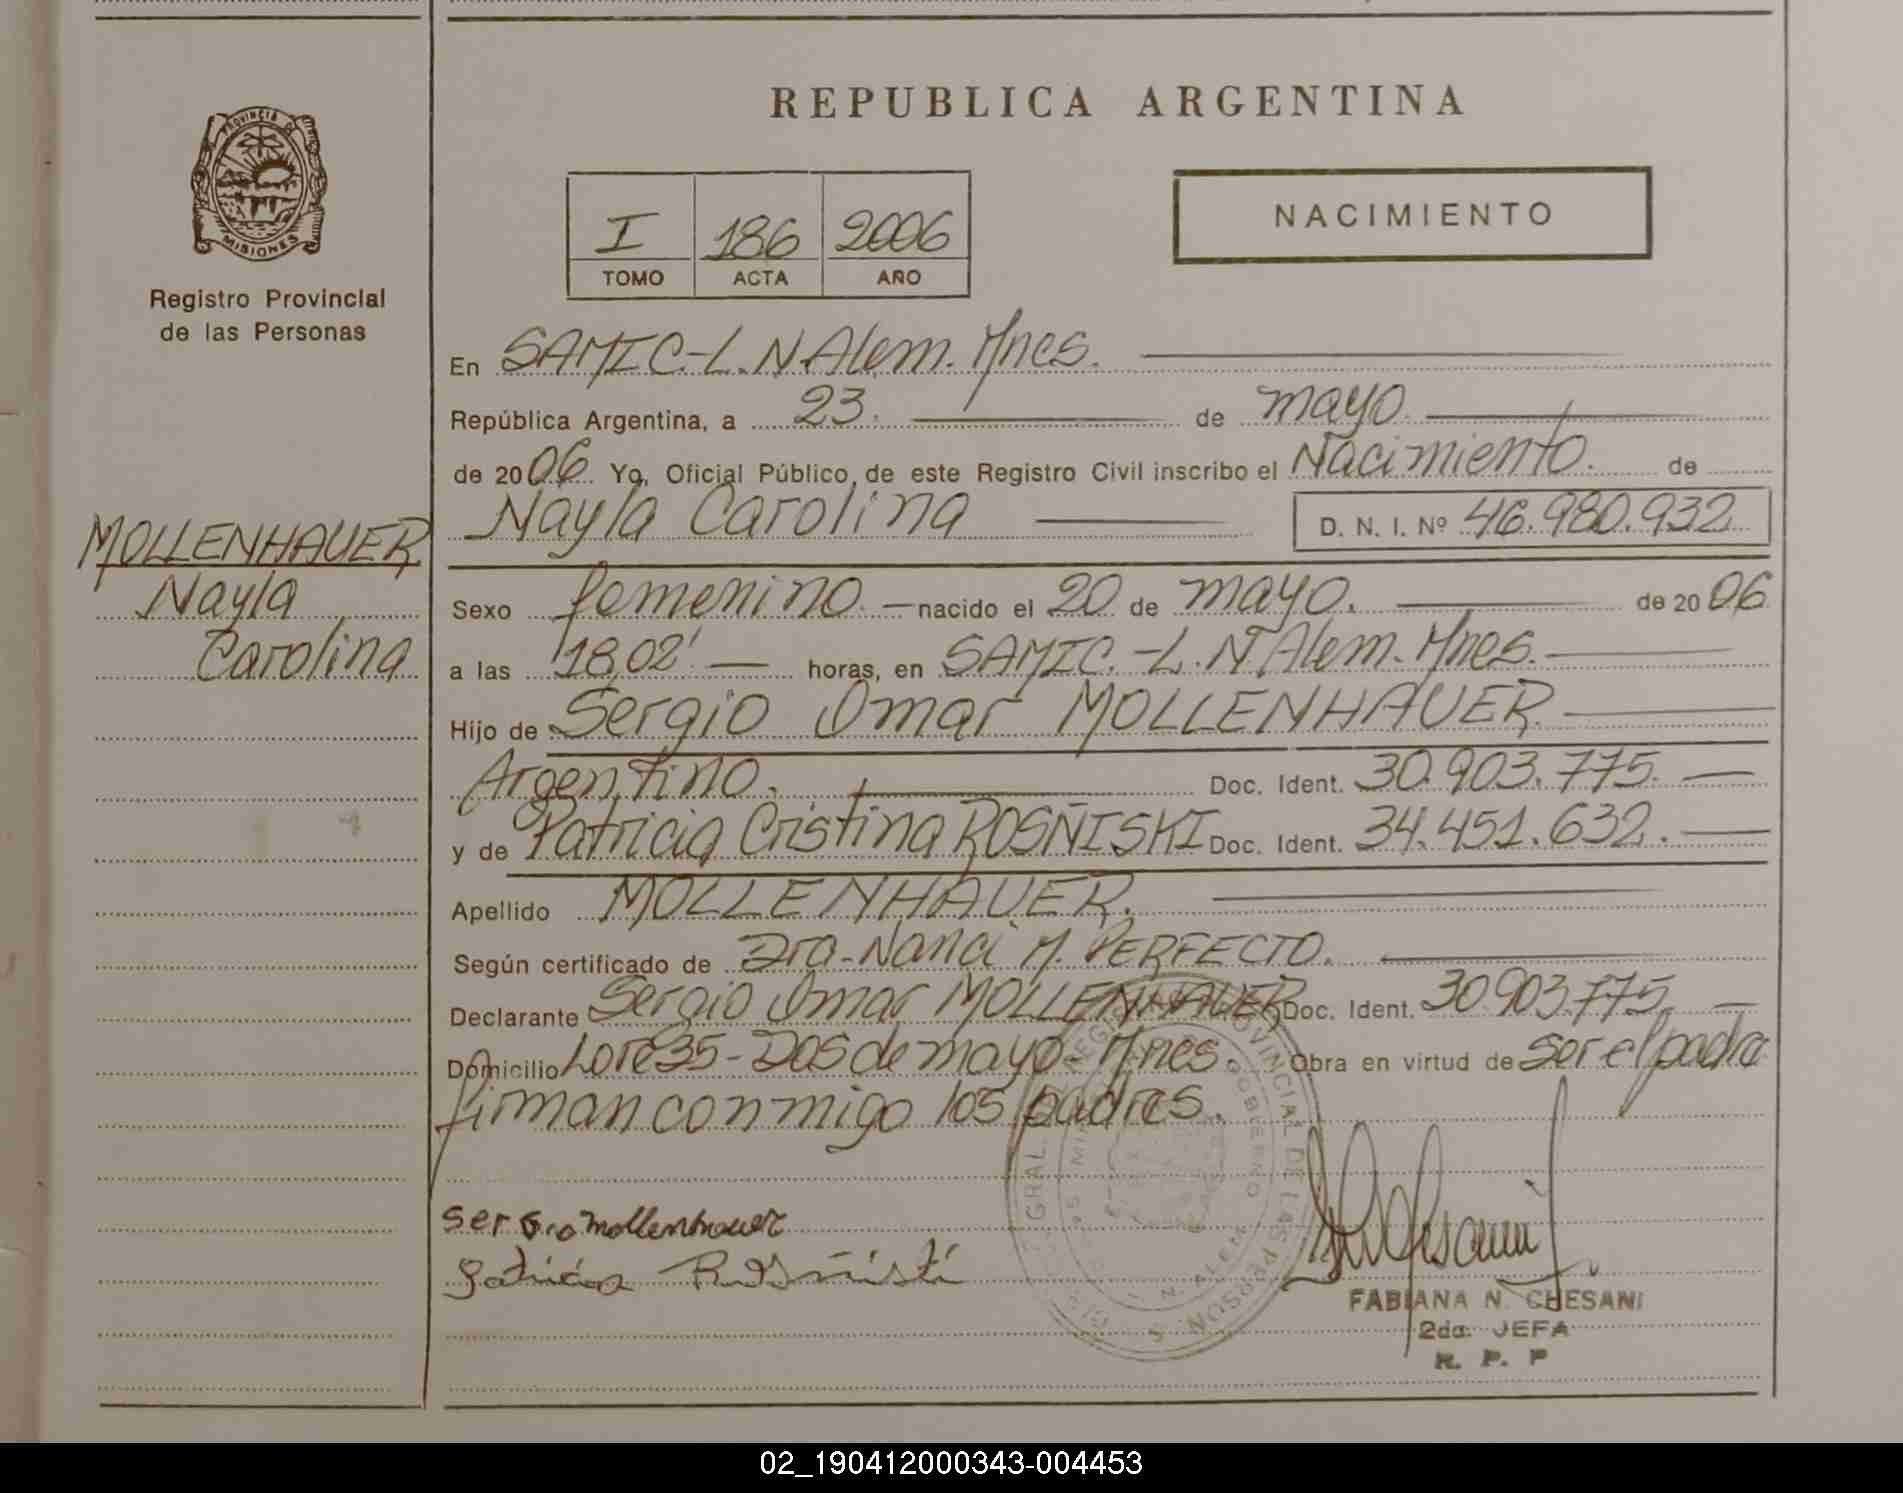 REPUBLICA ARGENTINA
PROVINCIA DE
MISIONES
Registro Provincial
de las Personas
I 186 2006
TOMO ACTA AÑO
NACIMIENTO
En SAMIC.-L.N.Alem. Mnes.
República Argentina, a 23. de mayo.
de 2006. Yo, Oficial Público de este Registro Civil inscribo el Nacimiento. de
Nayla Carolina D. N. I. Nº 46.980.932
MOLLENHAUER.
Nayla
Carolina
Sexo femenino. nacido el 20 de mayo. de 2006
a las 18,02' horas, en SAMIC.-L.N.Alem. Mnes.
Hijo de Sergio Omar MOLLENHAUER.
Argentino. Doc. Ident. 30.903.775.
y de Patricia Cristina ROSÑISKI Doc. Ident. 34.451.632.
Apellido MOLLENHAUER.
Según certificado de Dra. Nanci M. PERFECTO.
Declarante Sergio Omar MOLLENHAUER Doc. Ident. 30.903.775.
Domicilio Lote 35 - Dos de mayo - Mnes. Obra en virtud de ser el padre
firman conmigo los padres.
Sergio mollenhauer
FABIANA N. CHESANI
2da. JEFA
R. P. P
02_190412000343-004453